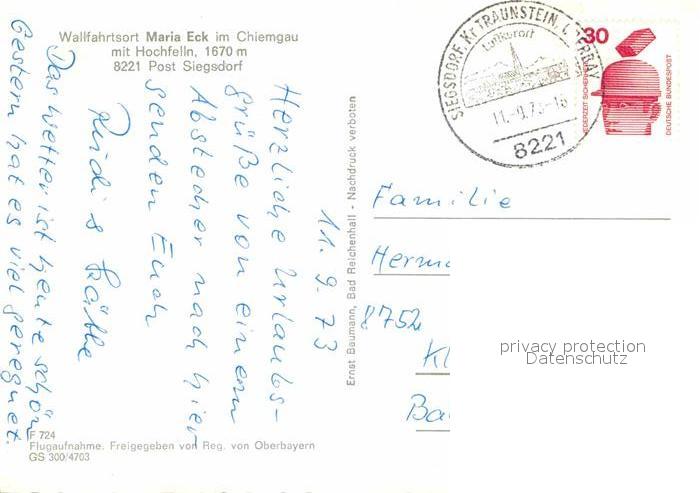 Wallfahrtsort Maria Eck im Chiemgau
mit Hochfelln, 1670 m
8221 Post Siegsdorf
11.9.73
Herzliche Urlaubs-
grüße von einem
Abstecher nach hier
senden Euch
Rudi & Käthe
Das Wetter ist heute schön
Gestern hat es viel geregnet.
F 724
Flugaufnahme. Freigegeben von Reg. von Oberbayern
GS 300/4703
Ernst Baumann, Bad Reichenhall - Nachdruck verboten
SIEGSDORF, Kr TRAUNSTEIN,
Luftkurort
8221
30
JEDERZEIT SICHERHEIT
DEUTSCHE BUNDESPOST
Familie
Herma
8752
Kl
Ba
privacy protection
Datenschutz